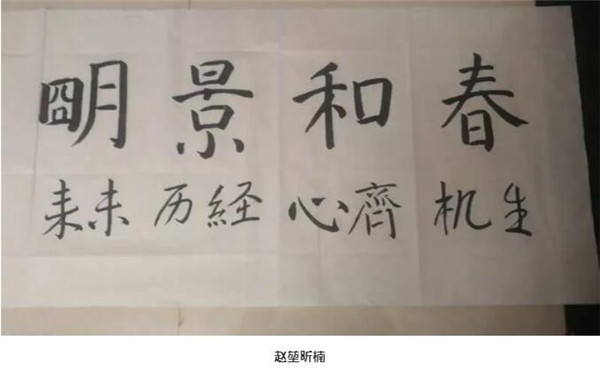 春和景朙
生机齊心経历未来
赵堃昕楠